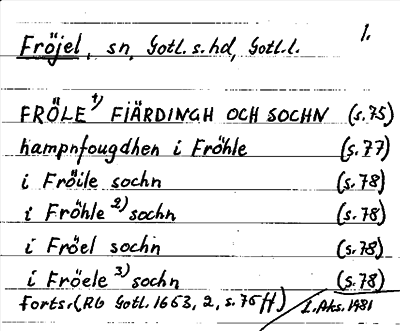 1.
Fröjel, sn, Gotl. s. hd, Gotl. l.
FRÖLE 1) FIÄRDINGH OCH SOCHN (s. 75)
hampnfougdhen i Fröhle (s. 77)
i Fröile sochn (s. 78)
i Fröhle 2) sochn (s. 78)
i Fröel sochn (s. 78)
i Fröele 3) sochn (s. 78)
forts. (RG Gotl. 1653, 2, s. 75 ff) 1. Aks. 1981